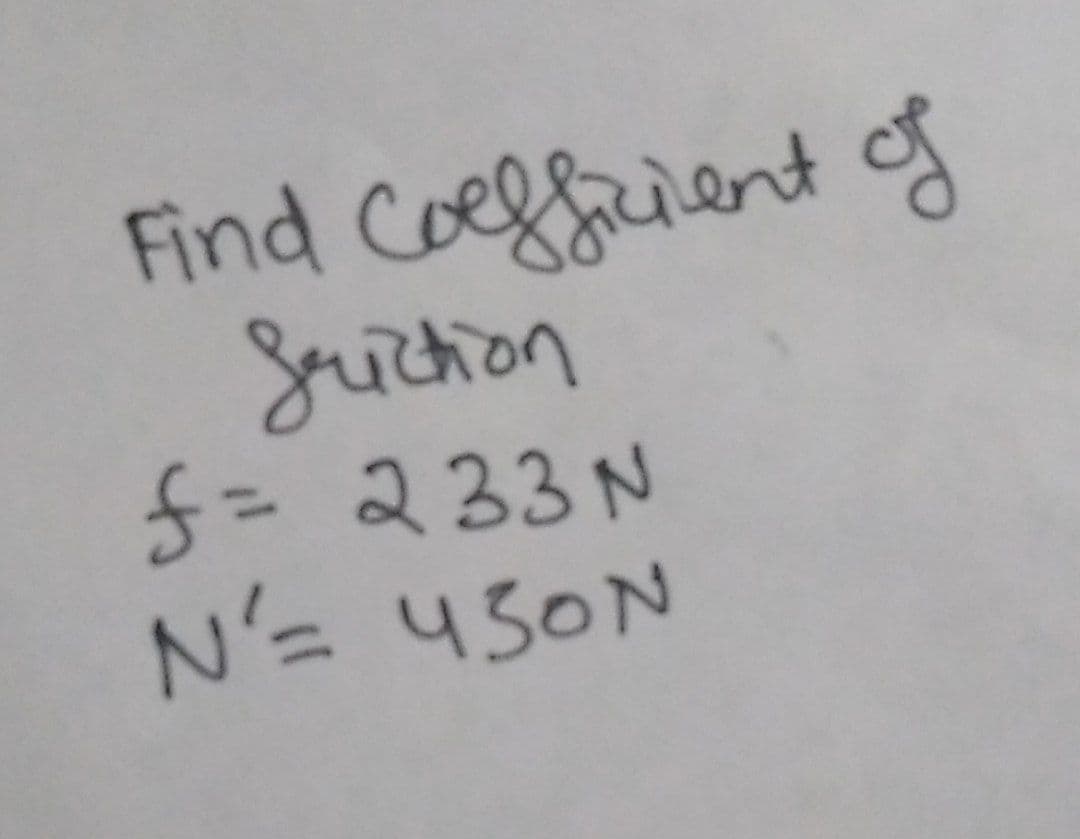 Find Coefficient of
friction
f = 233 N
N' = 450N